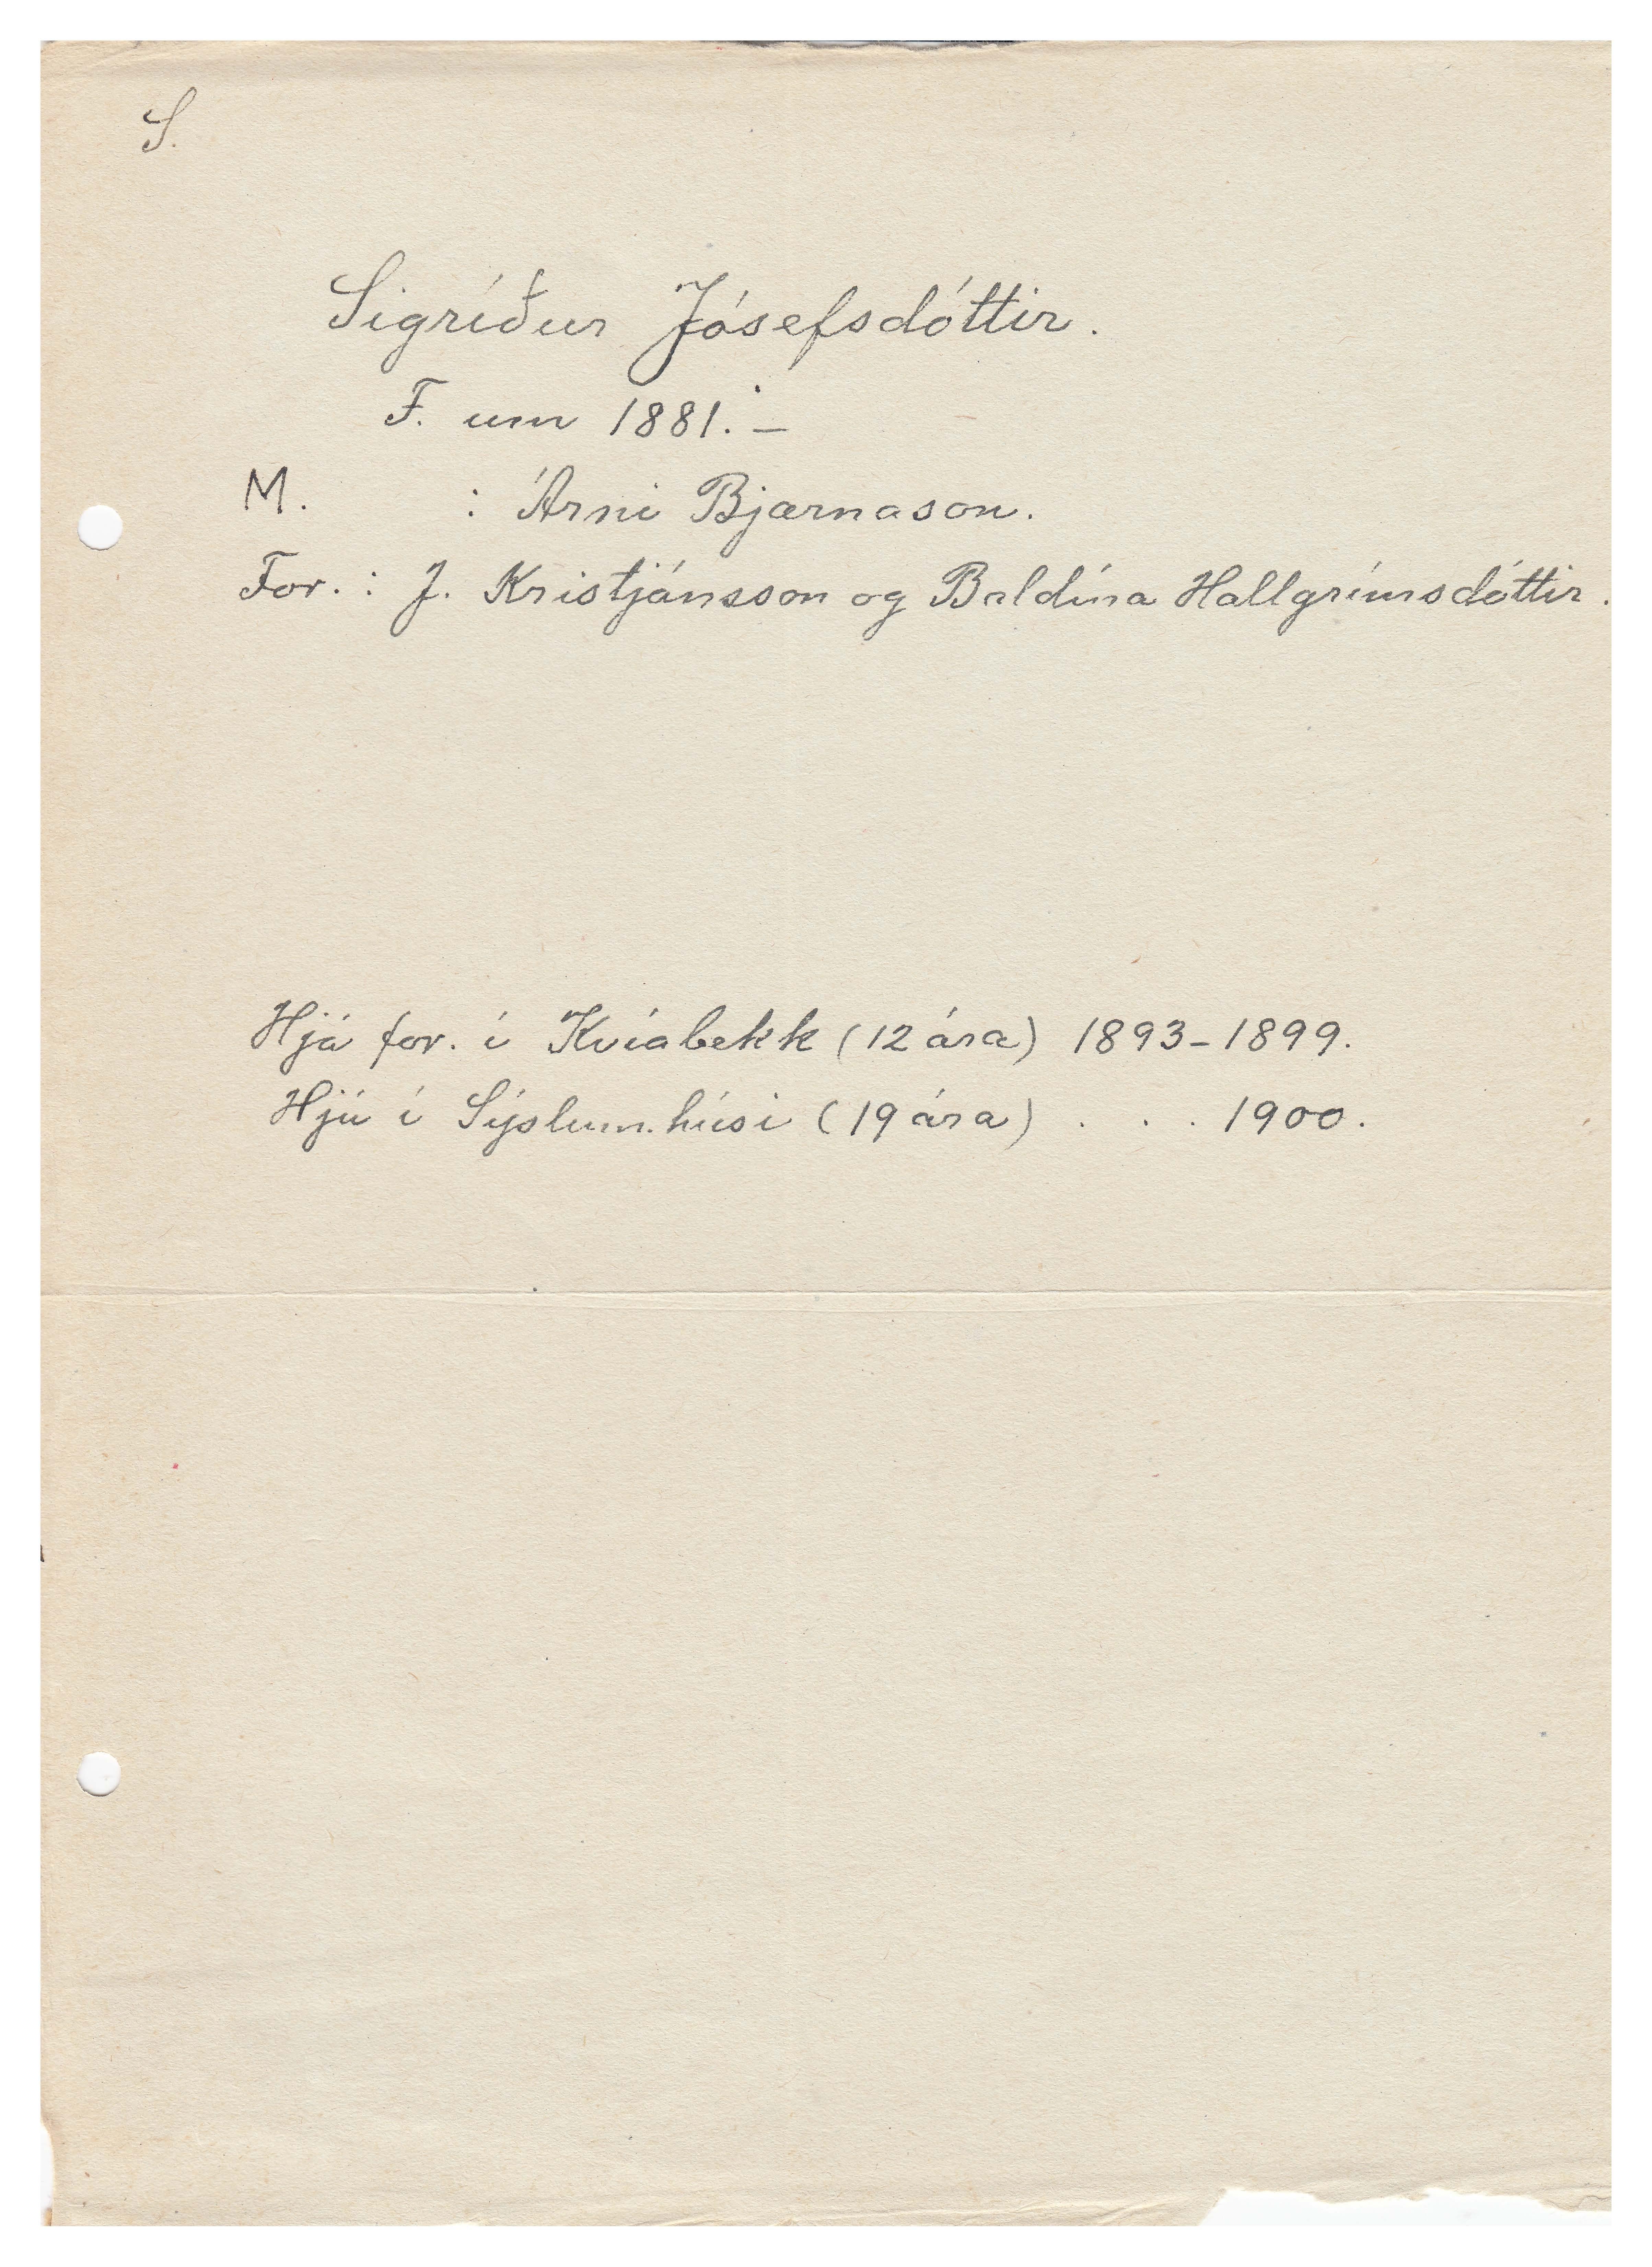 S.
Sigríður Jósefsdóttir.
F. um 1881. –
M. : Árni Bjarnason.
For. : J. Kristjánsson og Baldína Hallgrímsdóttir.
Hjá for. í Kvíabekk (12 ára) 1893-1899.
Hjú í Sýslum. húsi (19 ára) . . . 1900.